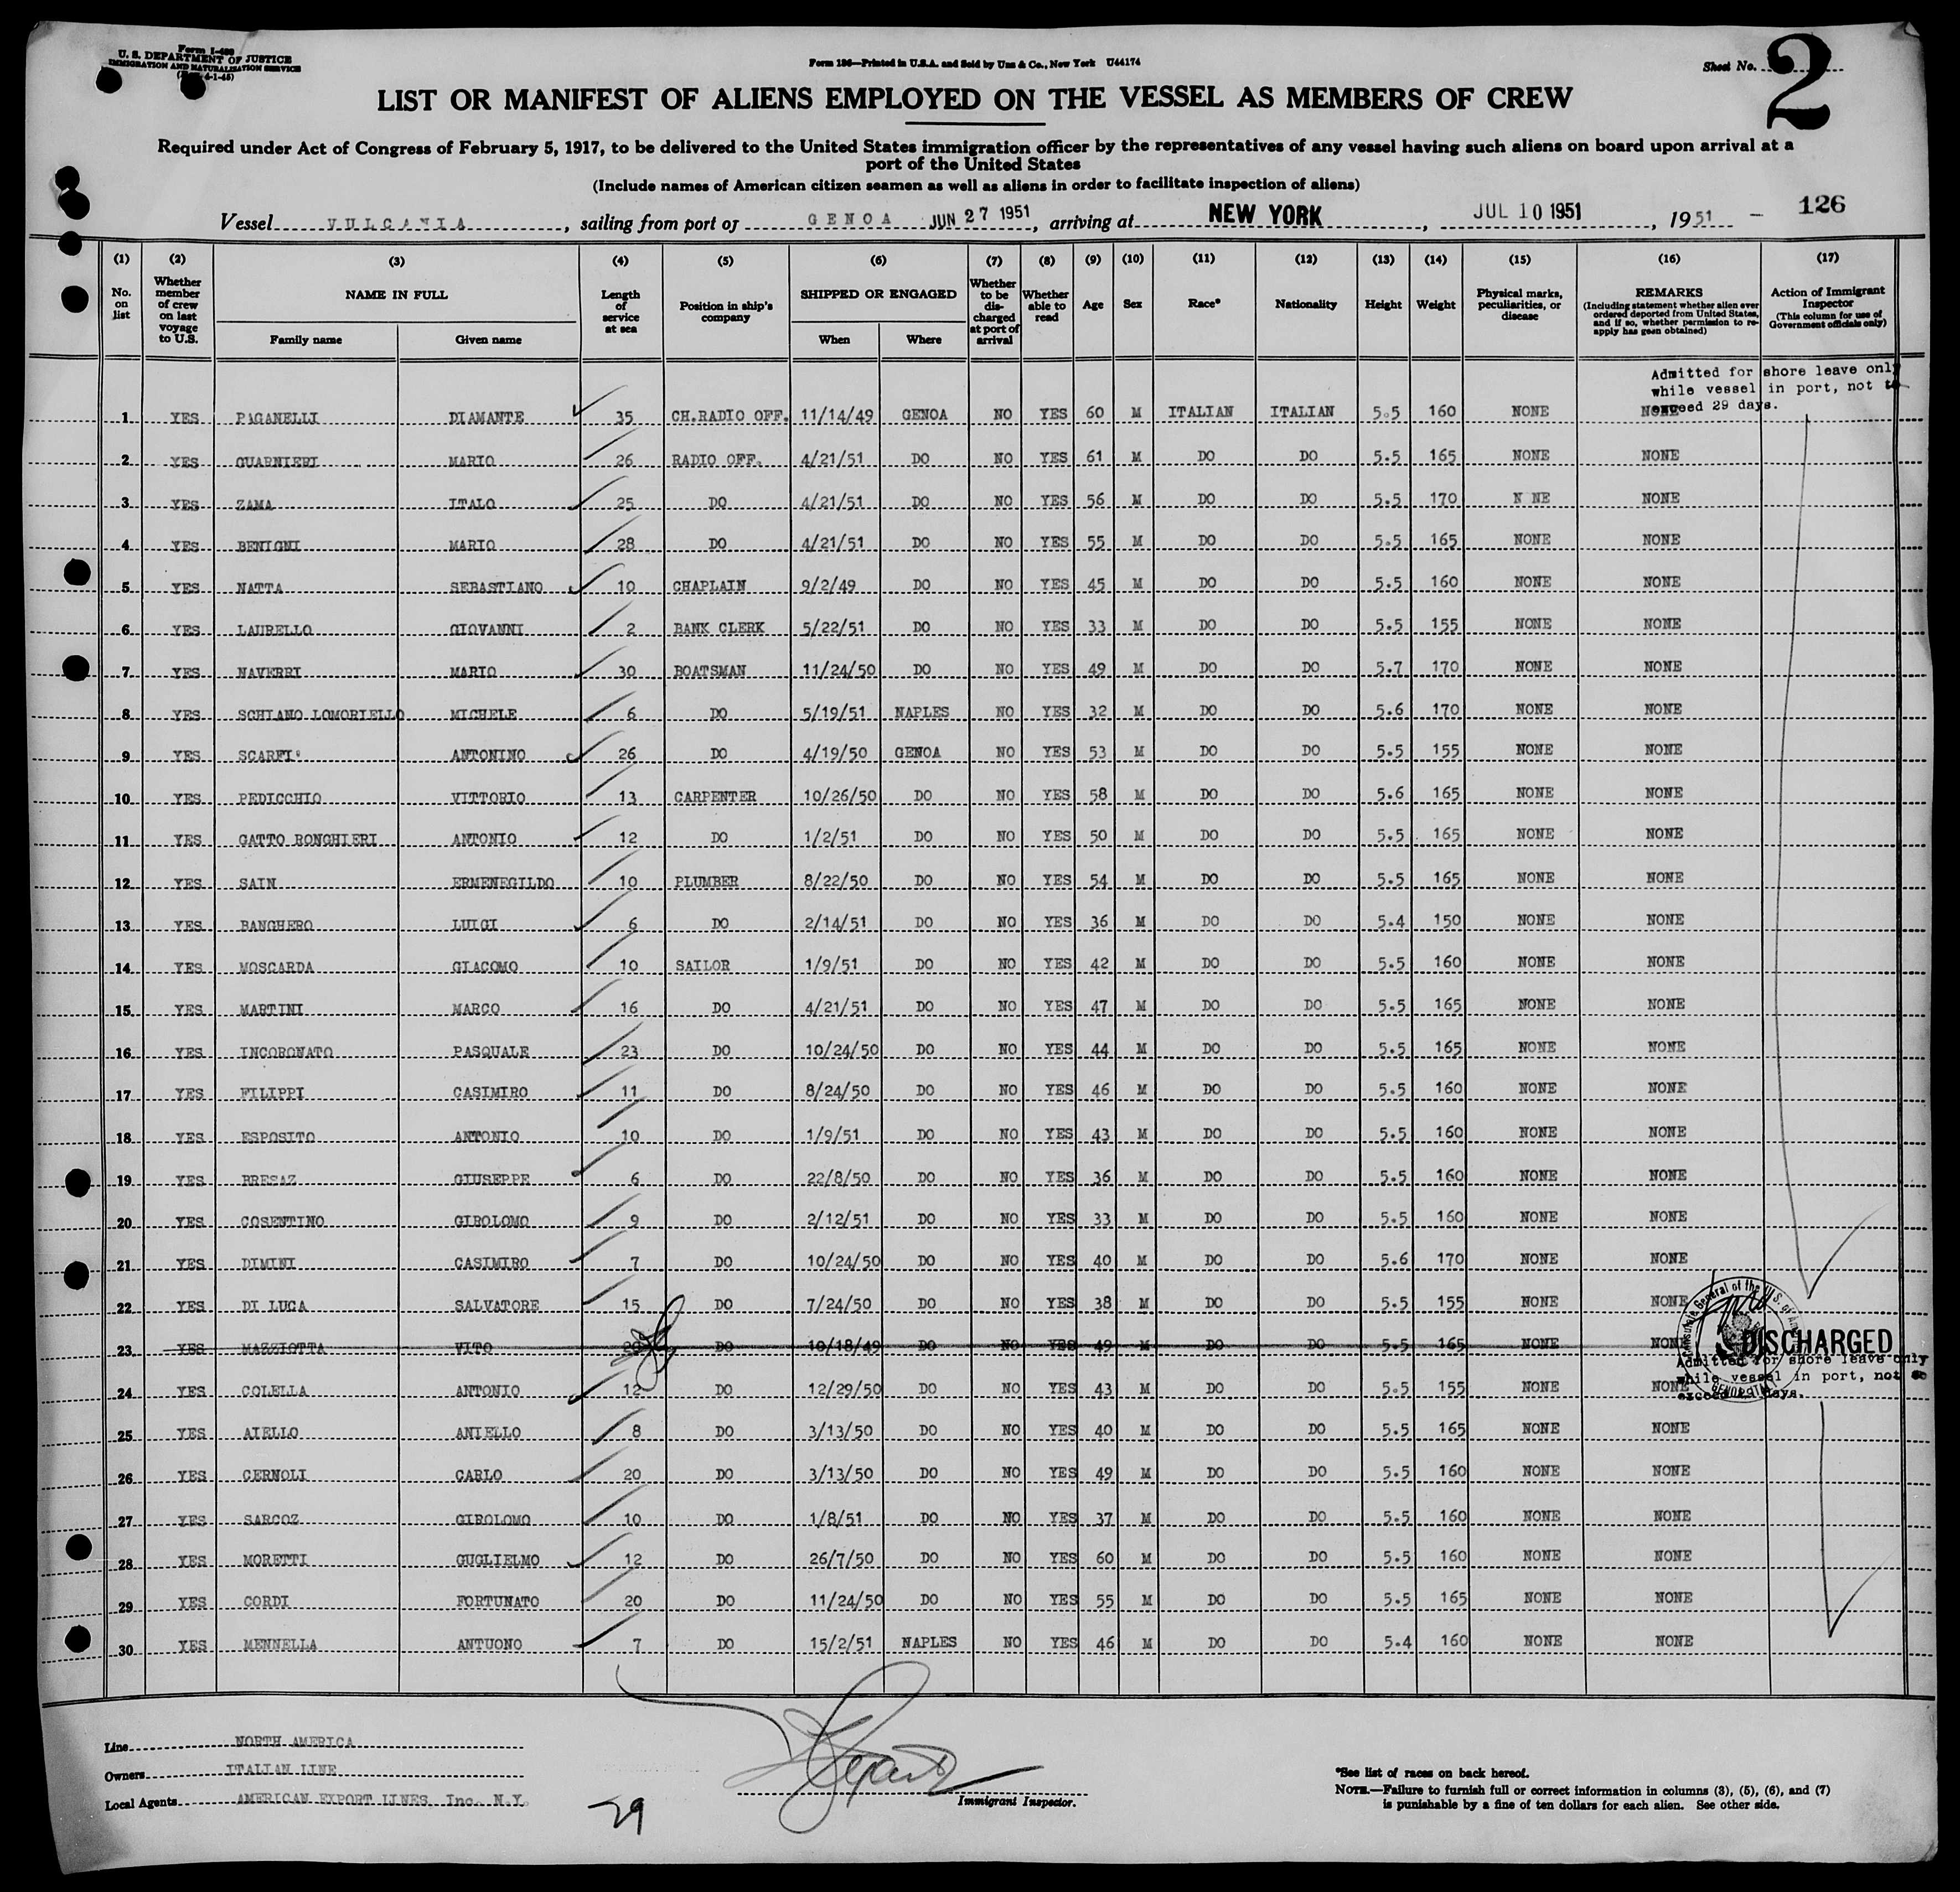 Form I-480
U. S. DEPARTMENT OF JUSTICE
IMMIGRATION AND NATURALIZATION SERVICE
4-1-45)
Form 186—Printed in U.S.A. and Sold by Unz & Co., New York U44174
Sheet No. 2
LIST OR MANIFEST OF ALIENS EMPLOYED ON THE VESSEL AS MEMBERS OF CREW
Required under Act of Congress of February 5, 1917, to be delivered to the United States immigration officer by the representatives of any vessel having such aliens on board upon arrival at a
port of the United States
(Include names of American citizen seamen as well as aliens in order to facilitate inspection of aliens)
Vessel VULCANIA, sailing from port of GENOA JUN 27 1951, arriving at NEW YORK, JUL 10 1951, 1951 – 126
(1) (2) (3) (4) (5) (6) (7) (8) (9) (10) (11) (12) (13) (14) (15) (16) (17)
No. on list | Whether member of crew on last voyage to U.S. | NAME IN FULL Family name Given name | Length of service at sea | Position in ship's company | SHIPPED OR ENGAGED When Where | Whether to be discharged at port of arrival | Whether able to read | Age | Sex | Race* | Nationality | Height | Weight | Physical marks, peculiarities, or disease | REMARKS (Including statement whether alien ever ordered deported from United States, and if so, whether permission to re-apply has geen obtained) | Action of Immigrant Inspector (This column for use of Government officials only)
Admitted for shore leave only
while vessel in port, not to
exceed 29 days.
1 YES PAGANELLI DIAMANTE 35 CH.RADIO OFF. 11/14/49 GENOA NO YES 60 M ITALIAN ITALIAN 5.5 160 NONE NONE
2 YES GUARNIERI MARIO 26 RADIO OFF. 4/21/51 DO NO YES 61 M DO DO 5.5 165 NONE NONE
3 YES ZAMA ITALO 25 DO 4/21/51 DO NO YES 56 M DO DO 5.5 170 N NE NONE
4 YES BENIGNI MARIO 28 DO 4/21/51 DO NO YES 55 M DO DO 5.5 165 NONE NONE
5 YES NATTA SEBASTIANO 10 CHAPLAIN 9/2/49 DO NO YES 45 M DO DO 5.5 160 NONE NONE
6 YES LAURELLO GIOVANNI 2 BANK CLERK 5/22/51 DO NO YES 33 M DO DO 5.5 155 NONE NONE
7 YES NAVERRI MARIO 30 BOATSMAN 11/24/50 DO NO YES 49 M DO DO 5.7 170 NONE NONE
8 YES SCHIANO LOMORIELLO MICHELE 6 DO 5/19/51 NAPLES NO YES 32 M DO DO 5.6 170 NONE NONE
9 YES SCARFI' ANTONINO 26 DO 4/19/50 GENOA NO YES 53 M DO DO 5.5 155 NONE NONE
10 YES PEDICCHIO VITTORIO 13 CARPENTER 10/26/50 DO NO YES 58 M DO DO 5.6 165 NONE NONE
11 YES GATTO RONGHIERI ANTONIO 12 DO 1/2/51 DO NO YES 50 M DO DO 5.5 165 NONE NONE
12 YES SAIN ERMENEGILDO 10 PLUMBER 8/22/50 DO NO YES 54 M DO DO 5.5 165 NONE NONE
13 YES BANCHERO LUIGI 6 DO 2/14/51 DO NO YES 36 M DO DO 5.4 150 NONE NONE
14 YES MOSCARDA GIACOMO 10 SAILOR 1/9/51 DO NO YES 42 M DO DO 5.5 160 NONE NONE
15 YES MARTINI MARCO 16 DO 4/21/51 DO NO YES 47 M DO DO 5.5 165 NONE NONE
16 YES INCORONATO PASQUALE 23 DO 10/24/50 DO NO YES 44 M DO DO 5.5 165 NONE NONE
17 YES FILIPPI CASIMIRO 11 DO 8/24/50 DO NO YES 46 M DO DO 5.5 160 NONE NONE
18 YES ESPOSITO ANTONIO 10 DO 1/9/51 DO NO YES 43 M DO DO 5.5 160 NONE NONE
19 YES BRESAZ GIUSEPPE 6 DO 22/8/50 DO NO YES 36 M DO DO 5.5 160 NONE NONE
20 YES COSENTINO GIROLOMO 9 DO 2/12/51 DO NO YES 33 M DO DO 5.5 160 NONE NONE
21 YES DIMINI CASIMIRO 7 DO 10/24/50 DO NO YES 40 M DO DO 5.6 170 NONE NONE
22 YES DI LUCA SALVATORE 15 DO 7/24/50 DO NO YES 38 M DO DO 5.5 155 NONE NONE
23 YES MAZZIOTTA VITO 20 DO 10/18/49 DO NO YES 49 M DO DO 5.5 165 NONE NONE DISCHARGED
Admitted for shore leave only
while vessel in port, not to
exceed 29 days.
24 YES COLELLA ANTONIO 12 DO 12/29/50 DO NO YES 43 M DO DO 5.5 155 NONE NONE
25 YES AIELLO ANIELLO 8 DO 3/13/50 DO NO YES 40 M DO DO 5.5 165 NONE NONE
26 YES CERNOLI CARLO 20 DO 3/13/50 DO NO YES 49 M DO DO 5.5 160 NONE NONE
27 YES SARCOZ GIROLOMO 10 DO 1/8/51 DO NO YES 37 M DO DO 5.5 160 NONE NONE
28 YES MORETTI GUGLIELMO 12 DO 26/7/50 DO NO YES 60 M DO DO 5.5 160 NONE NONE
29 YES CORDI FORTUNATO 20 DO 11/24/50 DO NO YES 55 M DO DO 5.5 165 NONE NONE
30 YES MENNELLA ANTUONO 7 DO 15/2/51 NAPLES NO YES 46 M DO DO 5.4 160 NONE NONE
Line NORTH AMERICA
Owners ITALIAN LINE
Local Agents AMERICAN EXPORT LINES, Inc. N.Y.
29
Immigrant Inspector.
*See list of races on back hereof.
NOTE.—Failure to furnish full or correct information in columns (3), (5), (6), and (7)
is punishable by a fine of ten dollars for each alien. See other side.